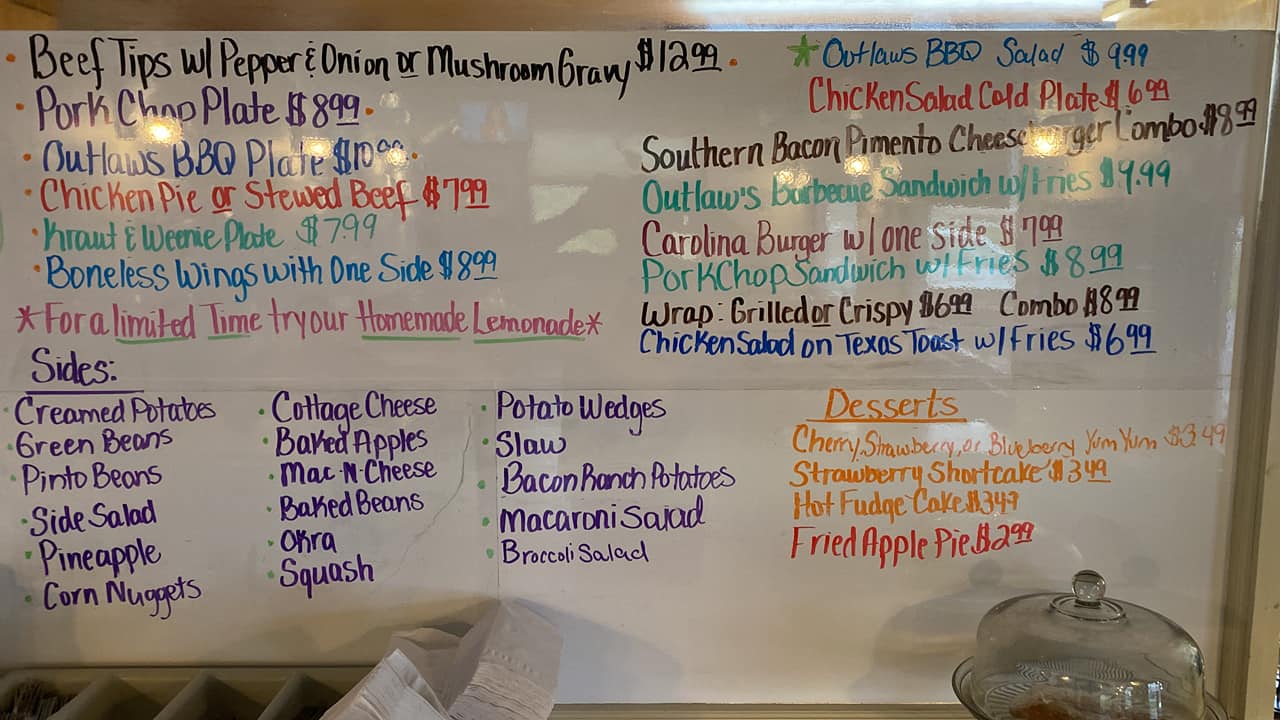 Beef Tips w/ Pepper & Onion or Mushroom Gravy $12.99
Pork Chop Plate $8.99
Outlaws BBQ Plate $10.99
Chicken Pie or Stewed Beef $7.99
Kraut & Weenie Plate $7.99
Boneless Wings with One Side $8.99
*For a limited Time try our Homemade Lemonade*
*Outlaws BBQ Salad $9.99
Chicken Salad Cold Plate $6.99
Southern Bacon Pimento Cheeseburger Combo $8.99
Outlaw's Barbecue Sandwich w/ Fries $9.99
Carolina Burger w/ one side $7.99
Pork Chop Sandwich w/ Fries $8.99
Wrap: Grilled or Crispy $6.99 Combo $8.99
Chicken Salad on Texas Toast w/ Fries $6.99
Sides:
Creamed Potatoes
Green Beans
Pinto Beans
Side Salad
Pineapple
Corn Nuggets
Cottage Cheese
Baked Apples
Mac-N-Cheese
Baked Beans
Okra
Squash
Potato Wedges
Slaw
Bacon Ranch Potatoes
Macaroni Salad
Broccoli Salad
Desserts
Cherry, Strawberry, or Blueberry Yum Yum $3.49
Strawberry Shortcake $3.49
Hot Fudge Cake $3.49
Fried Apple Pie $2.99